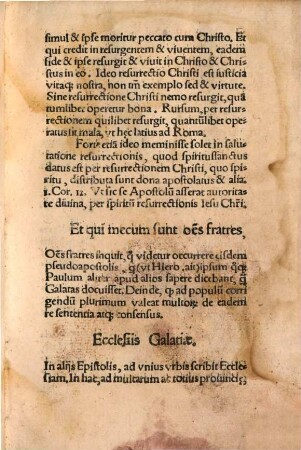 simul & ipse moritur peccato cum Christo. Et
qui credit in resurgentem & viuentem, eadem
fide & ipse resurgit & viuit in Christo & Chri
stus in eo. Ideo resurrectio Christi est iusticia
vitaqȝ nostra, non tm̄ exemplo sed & virtute.
Sine resurrectione Christi nemo resurgit, quā
tumlibet operetur bona. Rursum, per resur
rectionem quilibet resurgit, quantūlibet ope
ratus sit mala, vt hęc latius ad Roma.
Forte etiā ideo meminisse solet in salu
tatione resurrectionis, quod spiritussanctus
datus est per resurrectionem Christi, quo spi
ritu, distributa sunt dona apostolatus & alia.
1. Cor. 12. Vt sic se Apostolū asserat autorita
te diuina, per spiritū resurrectionis Iesu Chr̄i.
Et qui mecum sunt oēs fratres,
Oēs fratres inquit, ꝙ videtur occurrere eisdem
pseudoapostolis, vt Hiero. ait,
Paulum aliter apud alios sapere dicebant, ꝙ
Galatas docuisset. Deinde, ꝙ ad populū corri
gendū plurimum valeat multorȝ de eadem
re sententia atqȝ consensus.
Ecclesiis Galatiæ.
In alijs Epistolis, ad vnius vrbis scribit Eccle
siam, In hac, ad multarum ac totius prouincię,